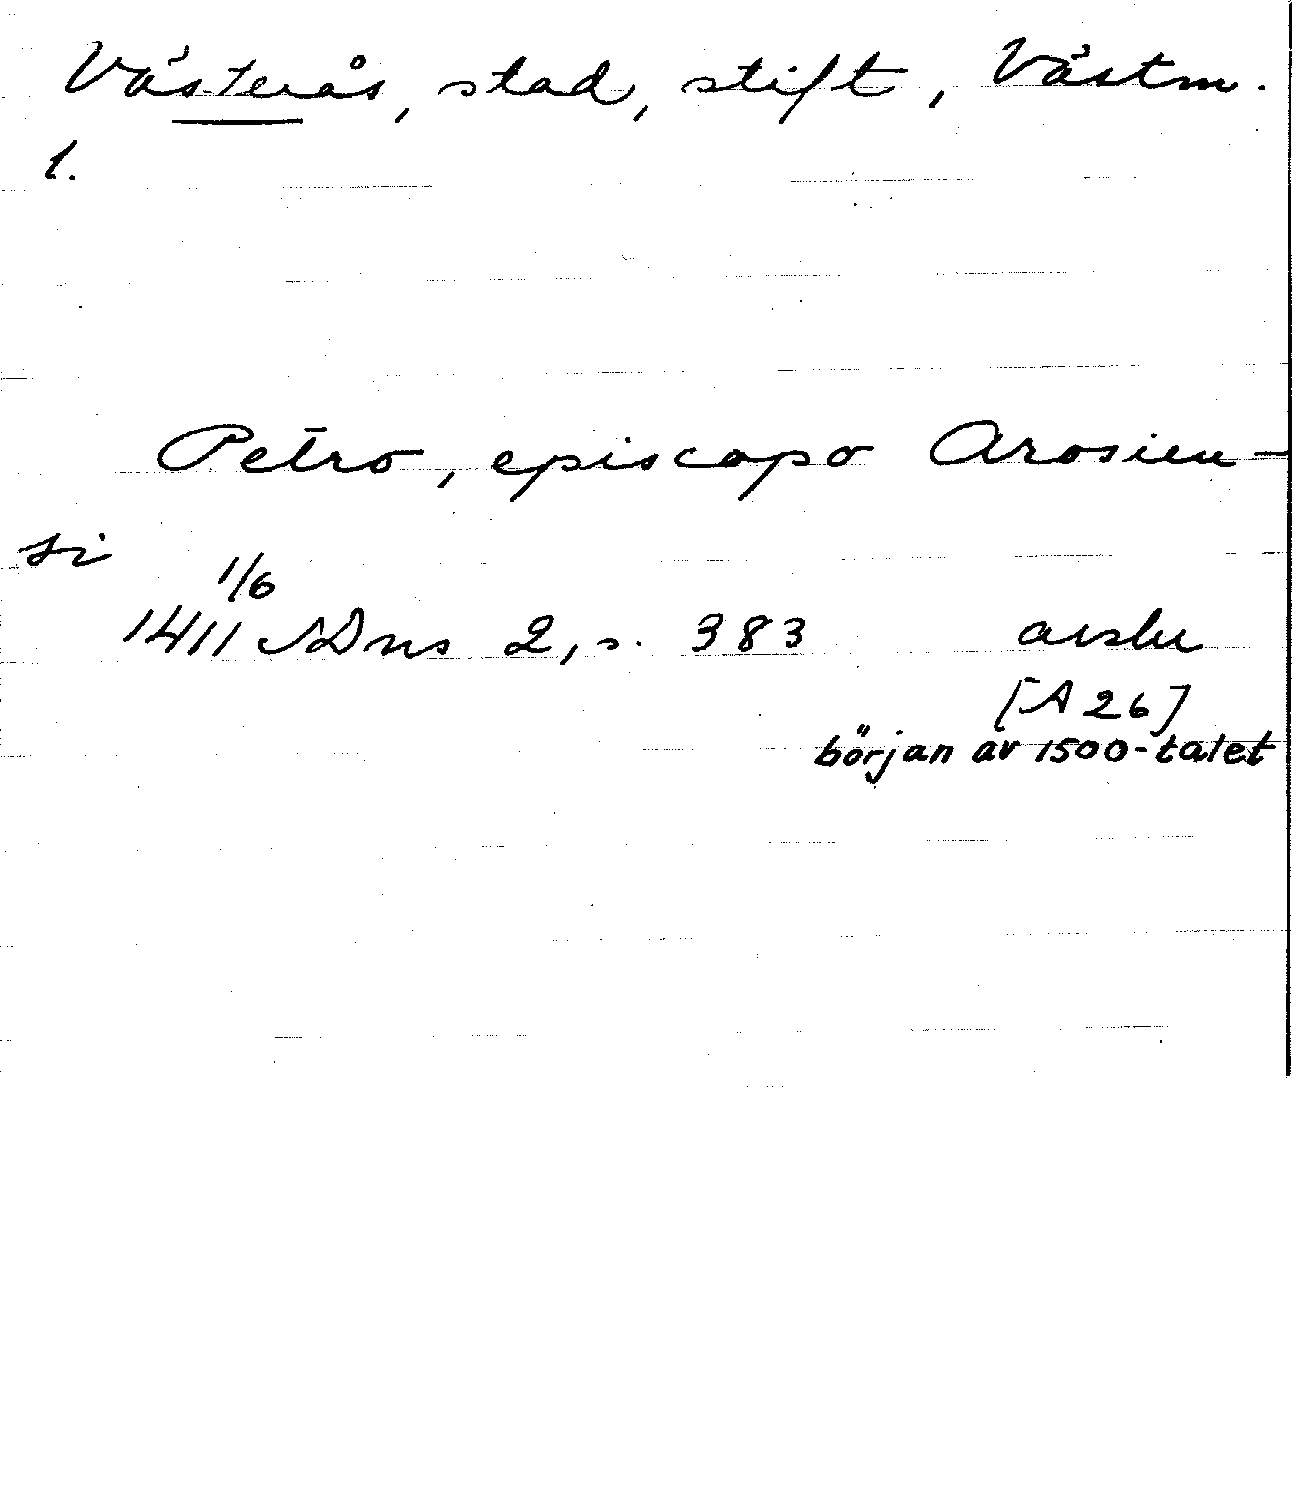 Västerås, stad, stift, Västm.
1.
Petro, episcopo Arosien-
si
1/6
1411 SDns 2, s. 383 avskr
[A 26]
början av 1500-talet